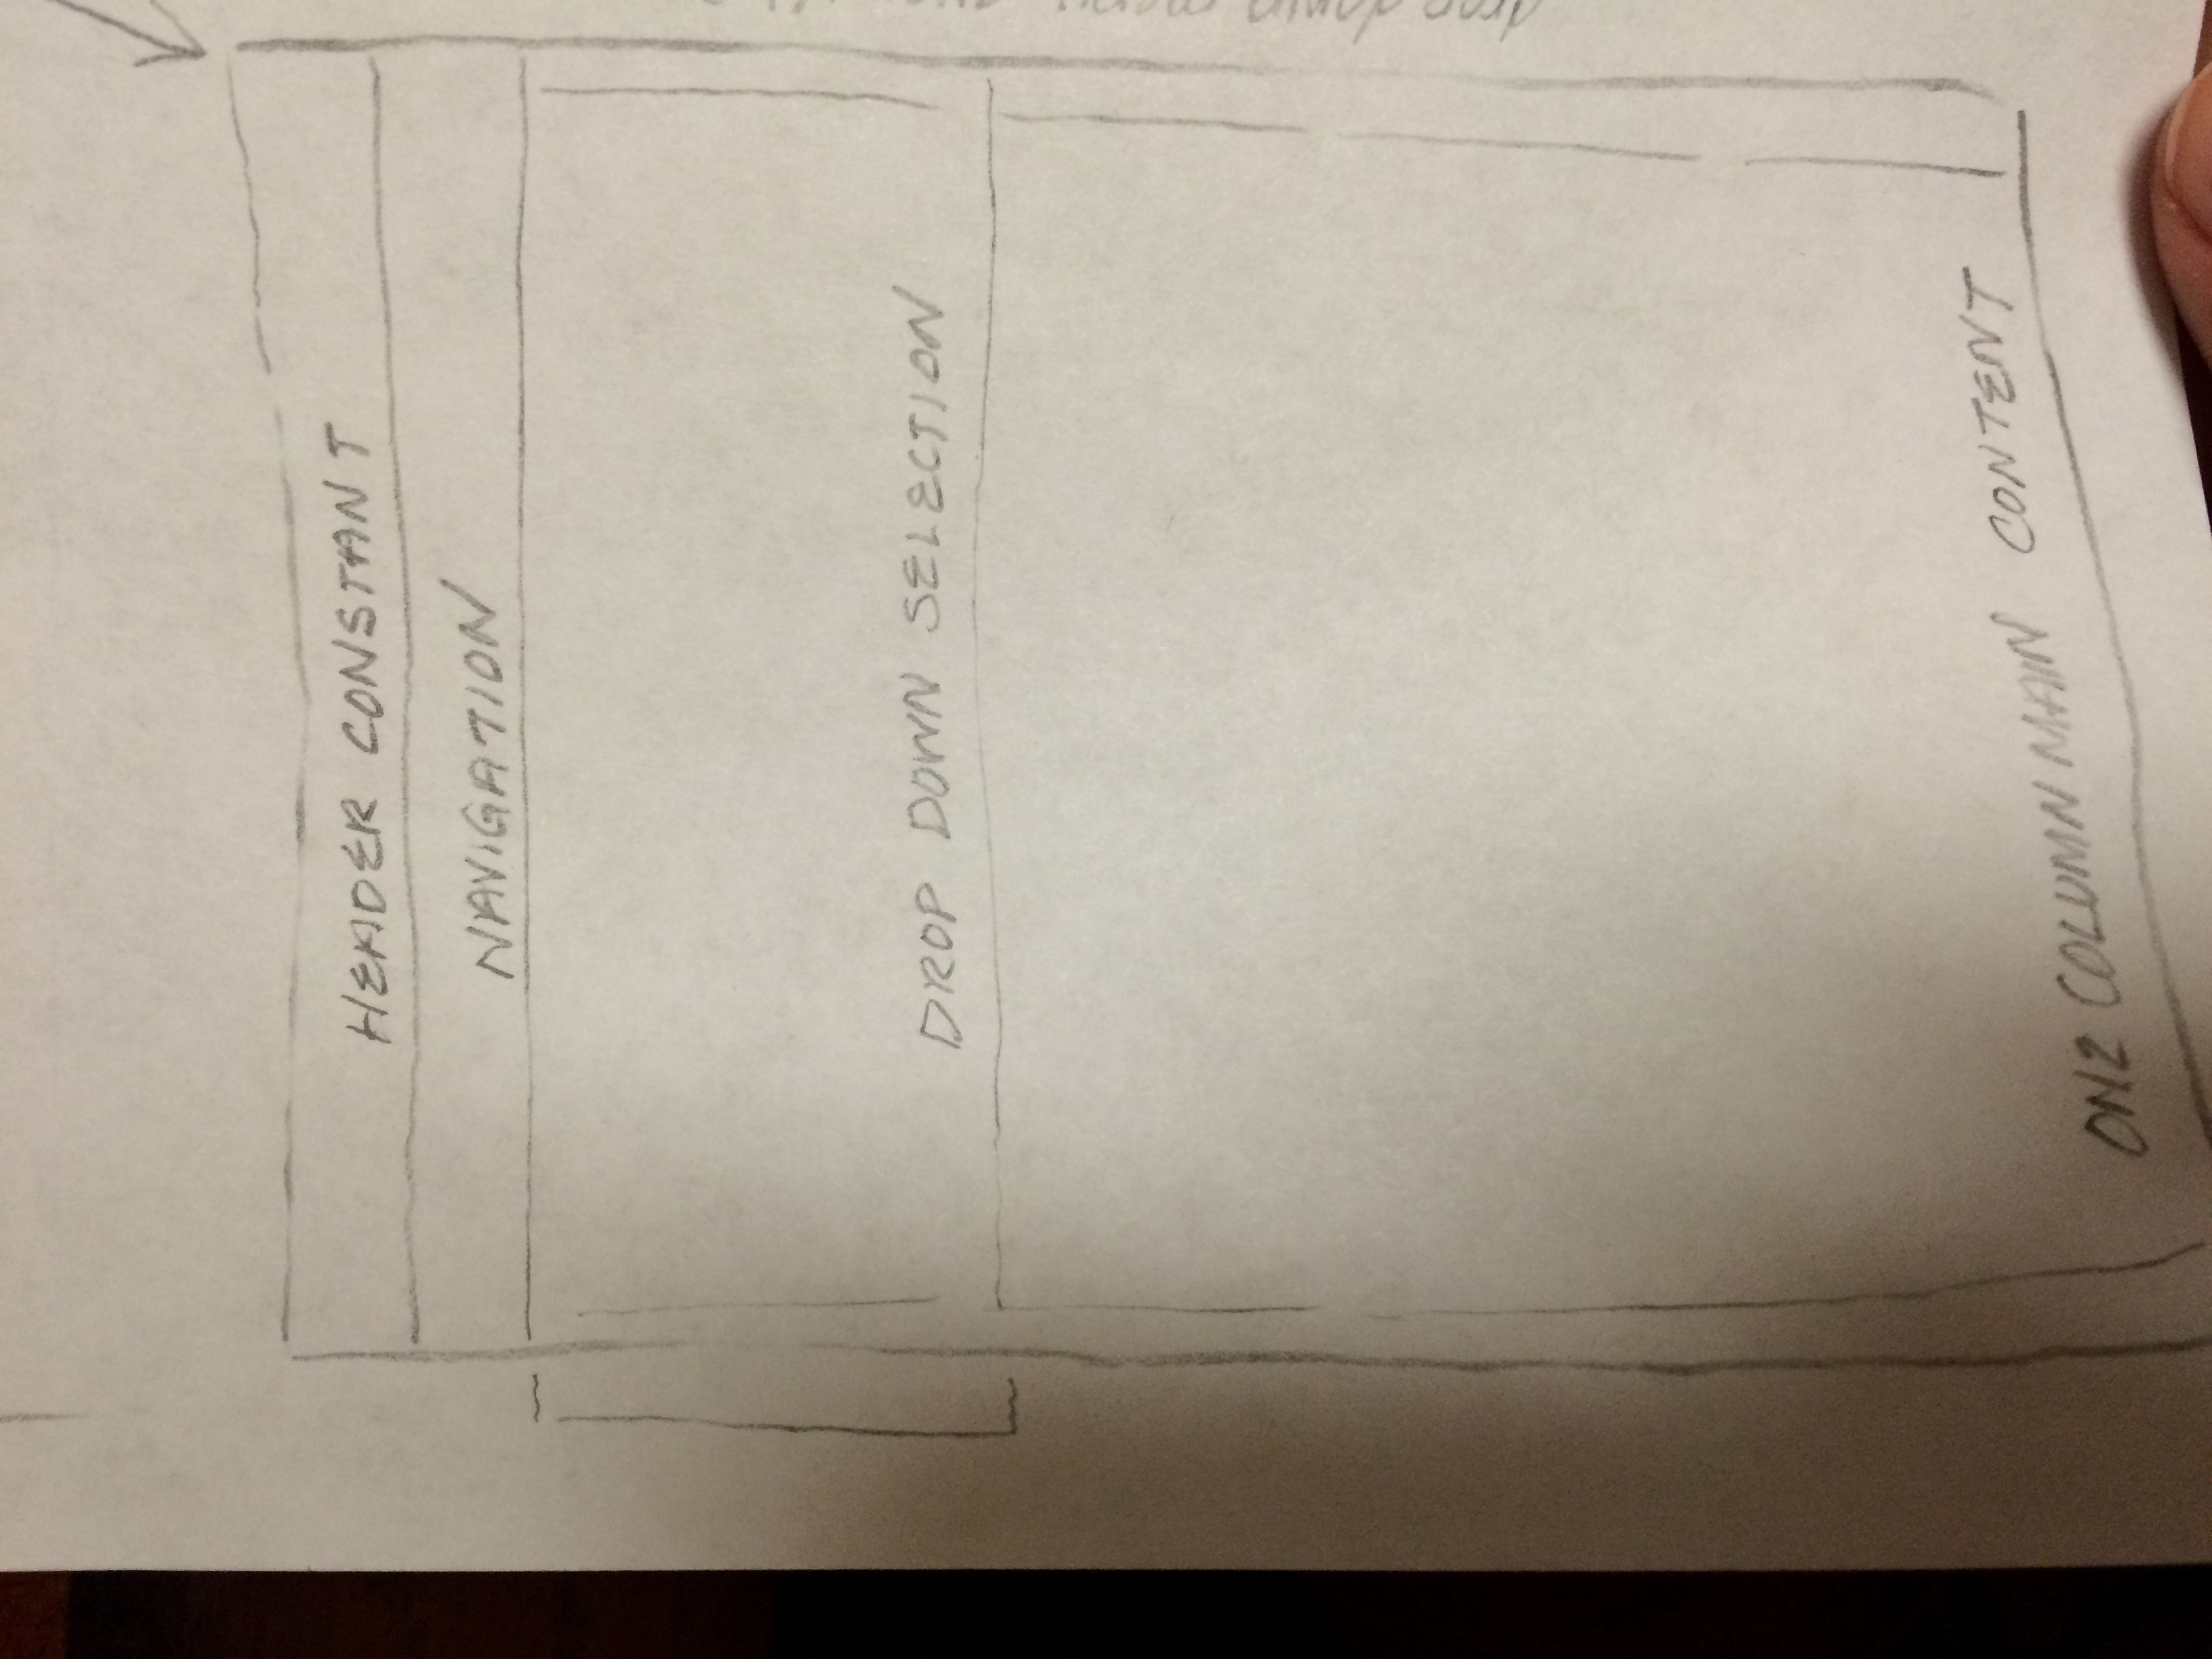 HEADER CONSTANT
NAVIGATION
DROP DOWN SELECTION
ONE COLUMN MAIN CONTENT
drop down menu